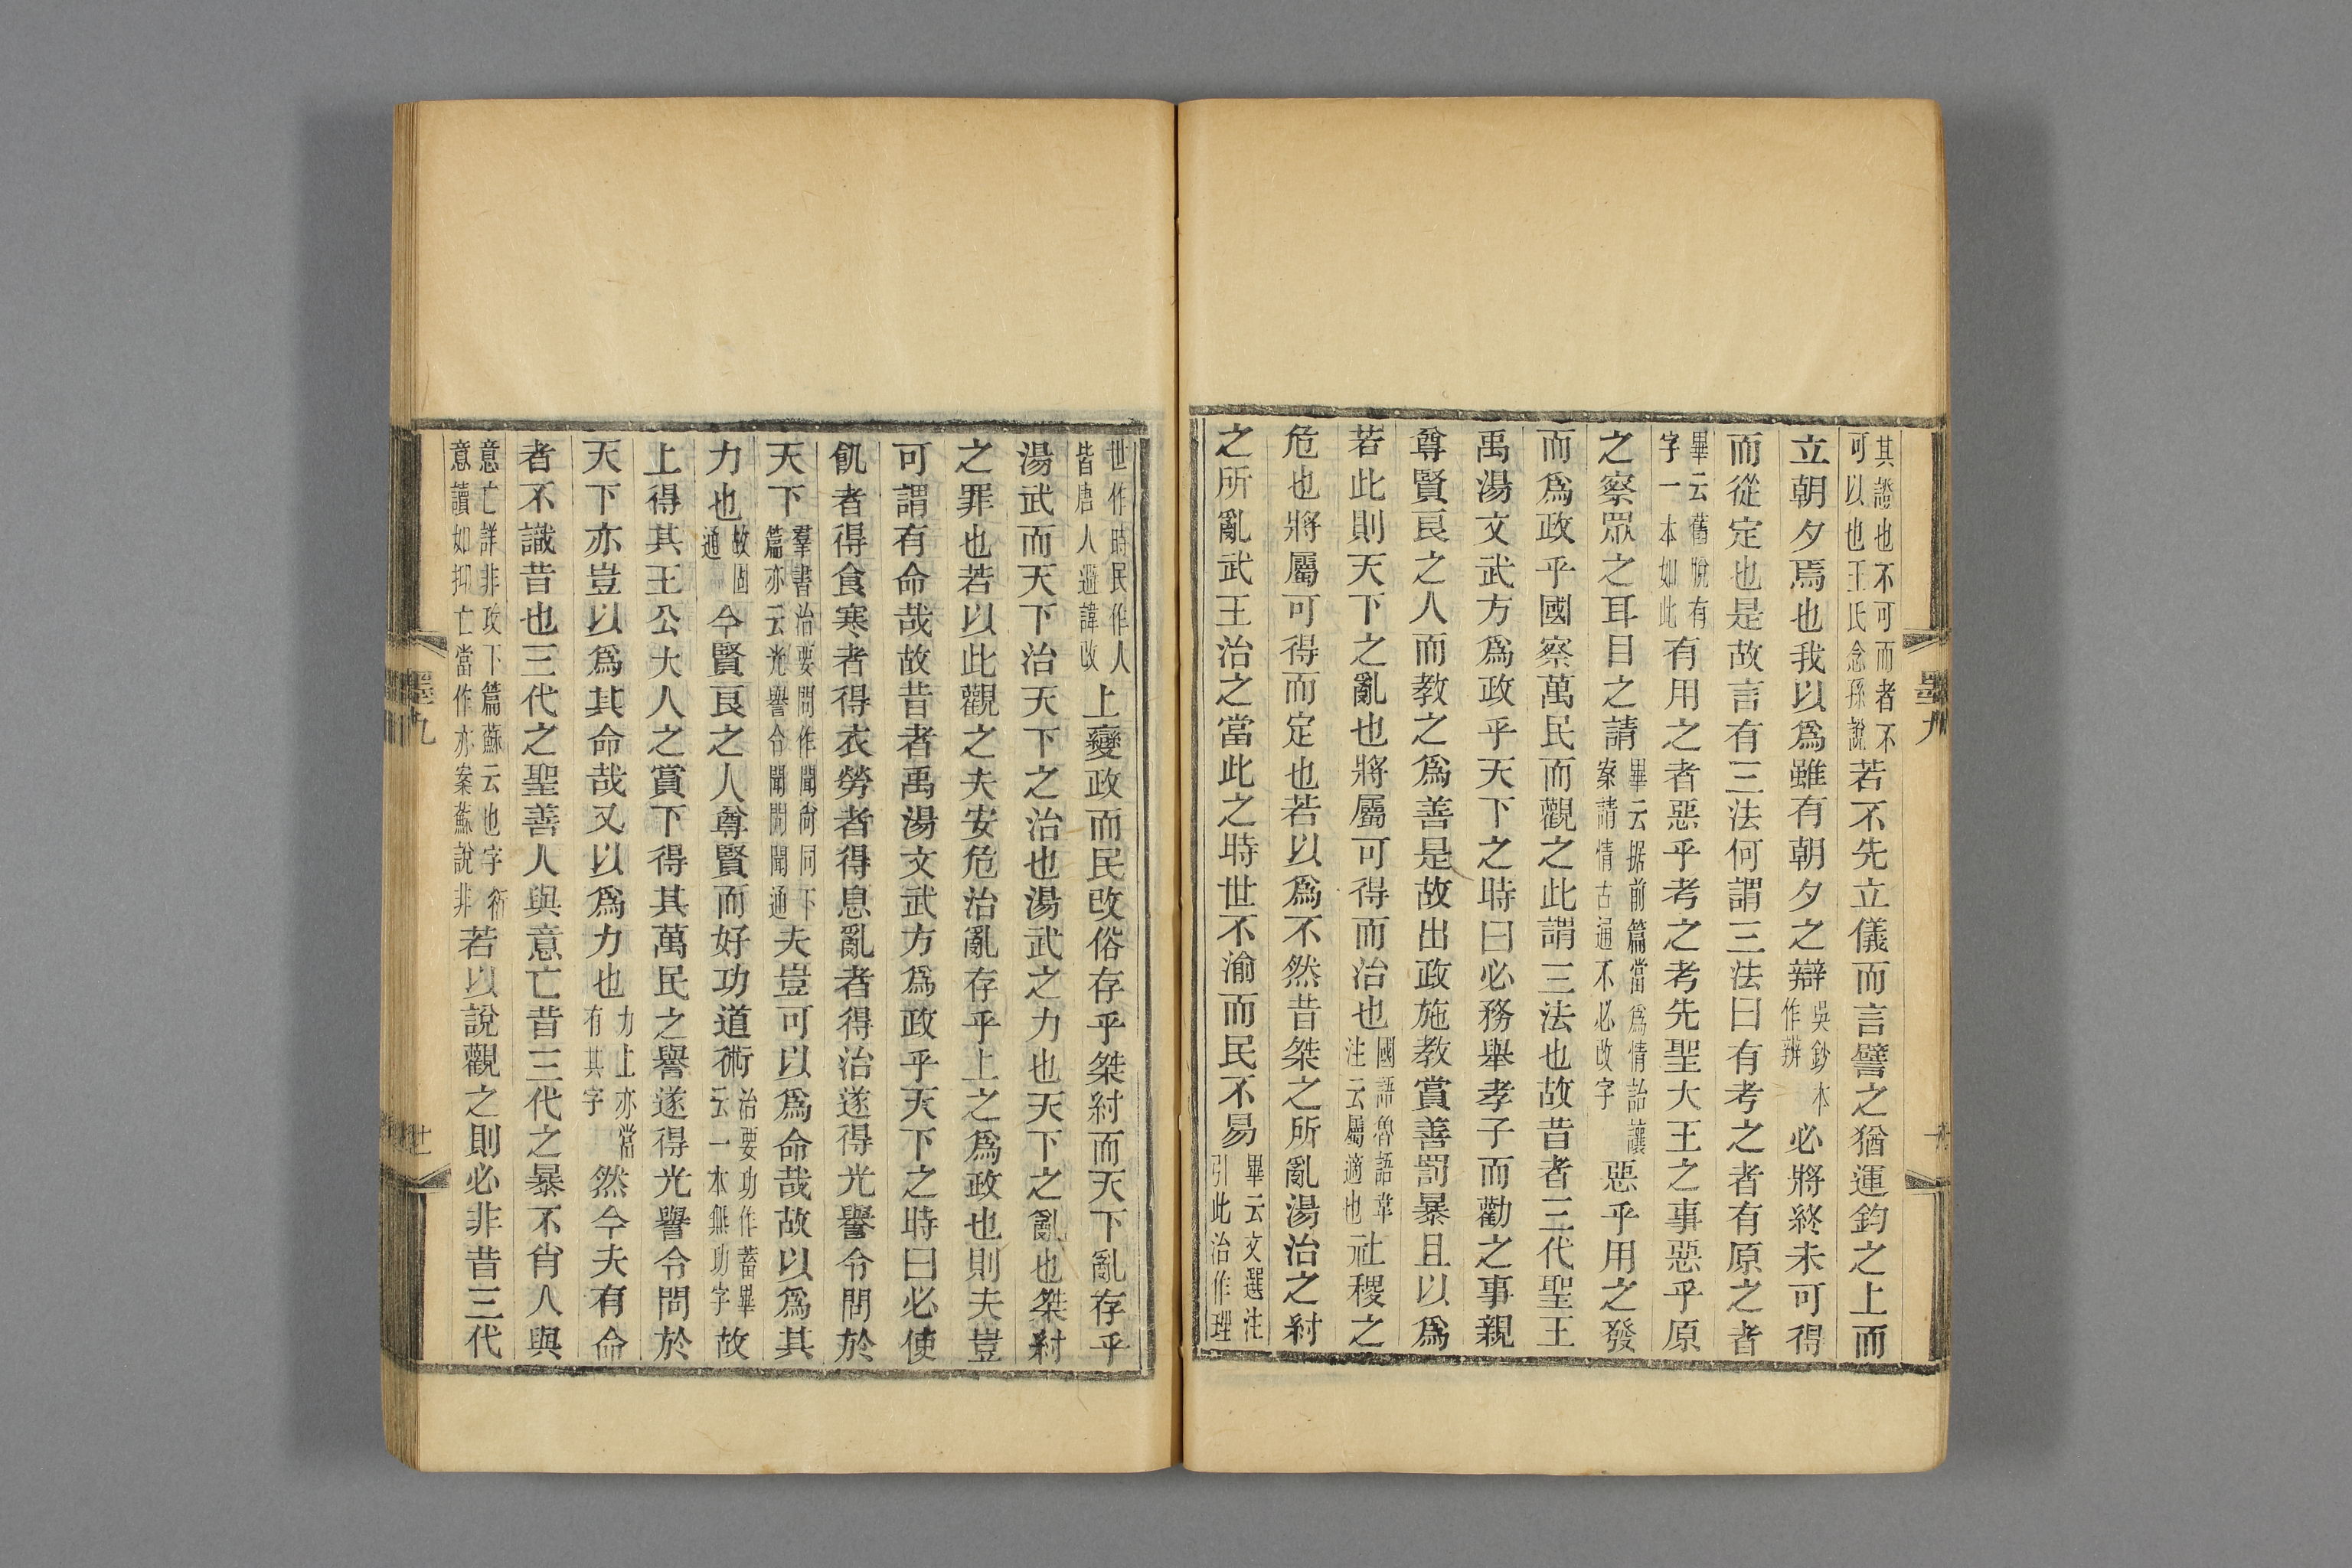 其證也不可而者不可以也王氏念孫說若不先立儀而言譬之猶運鈞之上而
立朝夕焉也我以爲雖有朝夕之辯吳鈔本作辨必將終未可得
而從定也是故言有三法何謂三法曰有考之者有原之者
畢云舊脫有字一本如此有用之者惡乎考之考先聖大王之事惡乎原
之察眾之耳目之請畢云据前篇當爲情詒讓案請情古通不必改字惡乎用之發
而爲政乎國察萬民而觀之此謂三法也故昔者三代聖王
禹湯文武方爲政乎天下之時曰必務舉孝子而勸之事親
尊賢良之人而教之爲善是故出政施教賞善罰暴且以爲
若此則天下之亂也將屬可得而治也國語魯語韋注云屬適也社稷之
危也將屬可得而定也若以爲不然昔桀之所亂湯治之紂
之所亂武王治之當此之時世不渝而民不易畢云文選注引此治作理
墨九
世作時民作人皆唐人避諱改上變政而民改俗存乎桀紂而天下亂存乎
湯武而天下治天下之治也湯武之力也天下之亂也桀紂
之罪也若以此觀之夫安危治亂存乎上之爲政也則夫豈
可謂有命哉故昔者禹湯文武方爲政乎天下之時曰必使
飢者得食寒者得衣勞者得息亂者得治遂得光譽令問於
天下羣書治要問作聞尙同下篇亦云光譽令聞問聞通夫豈可以爲命哉故以爲其
力也故固通今賢良之人尊賢而好功道術治要功作蓄畢云一本無功字故
上得其王公大人之賞下得其萬民之譽遂得光譽令問於
天下亦豈以爲其命哉又以爲力也力上亦當有其字然今夫有命
者不識昔也三代之聖善人與意亡昔三代之暴不肖人與
意亡詳非攻下篇蘇云也字衍意讀如抑亡當作亦案蘇說非若以說觀之則必非昔三代
墨九
廿